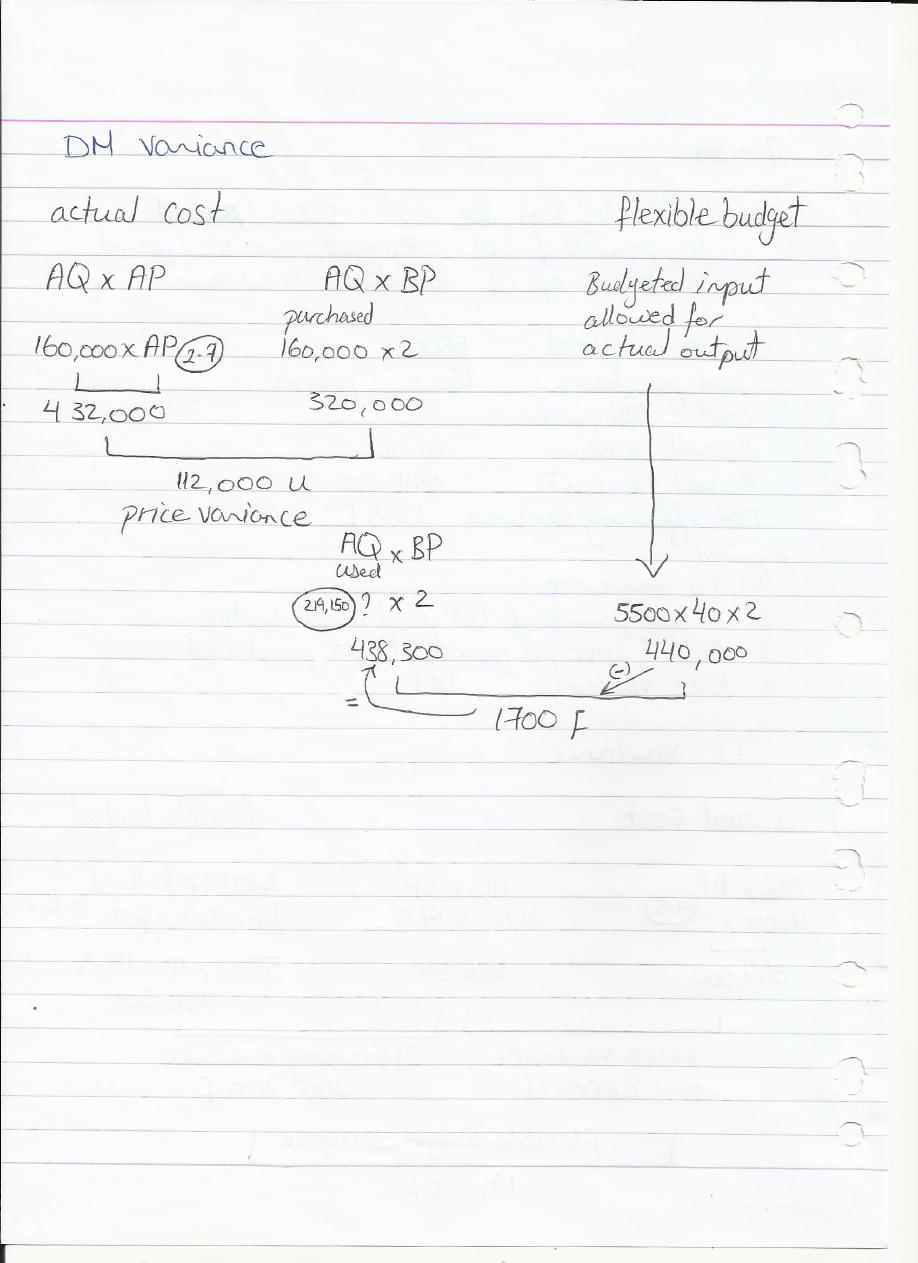 DM Variance
actual cost flexible budget
AQ x AP AQ x BP Budgeted input
purchased allowed for
160,000 x AP 2.7 160,000 x 2 actual output
432,000 320,000
112,000 U
price variance
AQ x BP
used
219,150 ? x 2 5500 x 40 x 2
438,300 440,000
(-)
= 1700 F